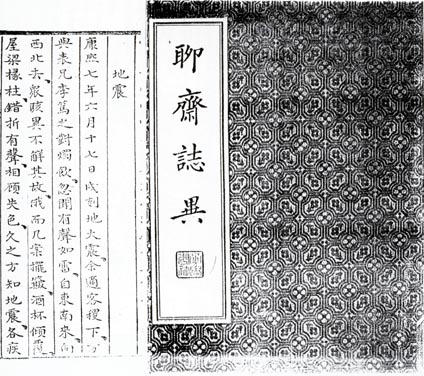 聊齋誌異
地震
康熙七年六月十七日戌刻地大震余適客稷下方
與表兄李篤之對燭飲忽聞有聲如雷自東南來向
西北去衆駭異不解其故俄而几案擺簸酒杯傾覆
屋梁椽柱錯折有聲相顧失色久之方知地震各疾